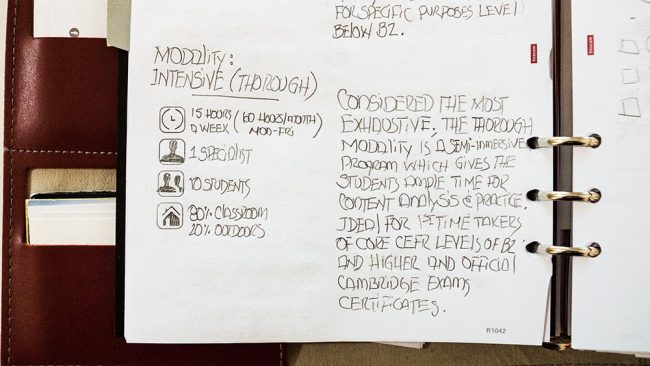 FOR SPECIFIC PURPOSES LEVEL
BELOW B2.
MODALITY:
INTENSIVE (THOROUGH)
15 HOURS (60 HOURS/MONTH
A WEEK MON-FRI)
1 SPECIALIST
10 STUDENTS
80% CLASSROOM
20% OUTDOORS
CONSIDERED THE MOST
EXHAUSTIVE, THE THOROUGH
MODALITY IS A SEMI-INMERSIVE
PROGRAM WHICH GIVES THE
STUDENTS AMPLE TIME FOR
CONTENT ANALYSIS & PRACTICE.
IDEAL FOR 1ST TIME TAKERS
OF CORE CEFR LEVELS OF B2
AND HIGHER AND OFFICIAL
CAMBRIDGE EXAMS
CERTIFICATES.
R1042